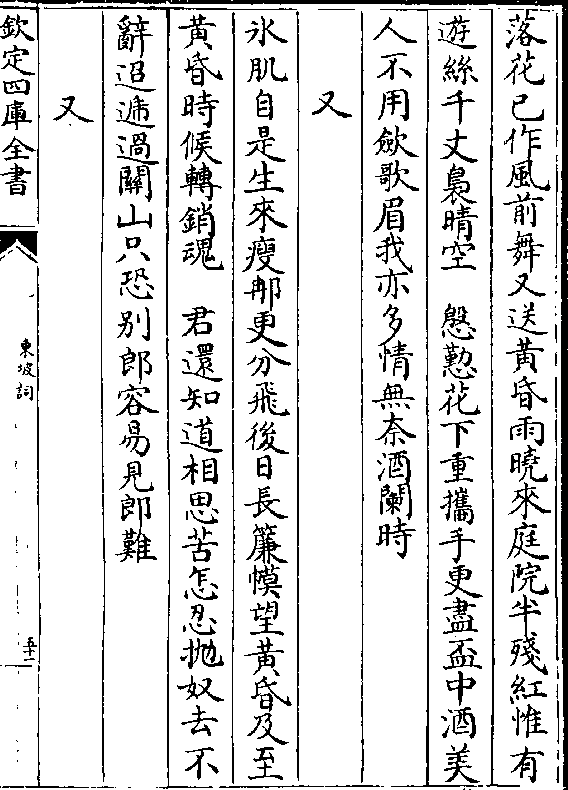 落花已作風前舞又送黃昏雨曉來庭院半殘紅惟有
遊絲千丈裊晴空　慇懃花下重攜手更盡盃中酒美
人不用斂歌眉我亦多情無奈酒闌時
又
氷肌自是生來瘦那更分飛後日長簾幙望黃昏及至
黃昏時候轉銷魂　君還知道相思苦怎忍抛奴去不
辭迢遞過關山只恐别郎容易見郎難
又
欽定四庫全書
東坡詞
五十二